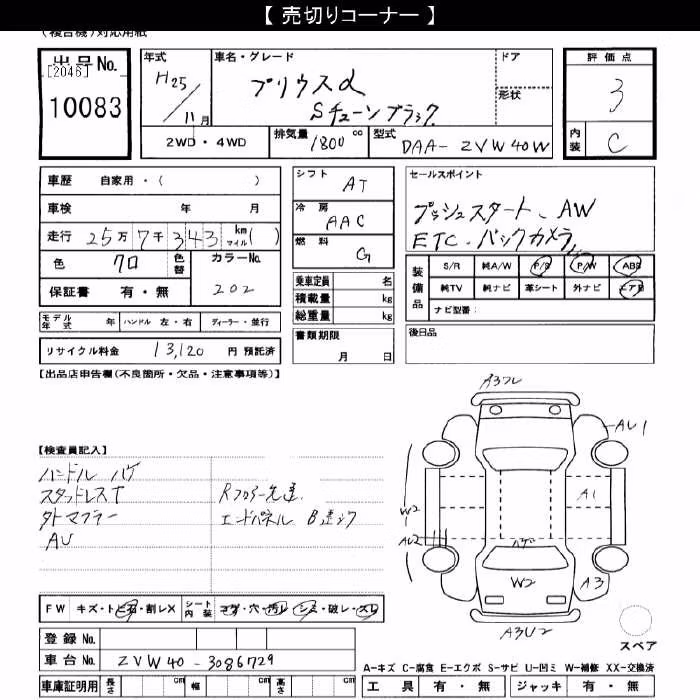 【 売切りコーナー 】
(複合機)対応用紙
出品No.
[2046]
10083
年式
H25/11月
車名・グレード
プリウスα
Sチューンブラック
ドア
形状
評価点
3
内装
C
2WD・4WD
排気量 1800 cc
型式 DAA-ZVW40W
車歴 自家用・( )
車検 年 月
走行 25万7千343 km マイル( )
色 クロ
色替
カラーNo.
202
保証書 有・無
シフト
AT
冷房
AAC
燃料
G
乗車定員 名
積載量 kg
総重量 kg
セールスポイント
プッシュスタート、AW
ETC、バックカメラ
装備品
S/R 純A/W P/S P/W ABS
純TV 純ナビ 革シート 外ナビ エアB
ナビ型番:
モデル年式 年 ハンドル 左・右 ディーラー・並行
リサイクル料金 13,120 円 預託済
書類期限
月 日
後日品
【出品店申告欄(不良箇所・欠品・注意事項等)】
【検査員記入】
ハンドル ハゲ
スタッドレスT
タトマフラー
AU
Rフロアー先違
エンドパネル B違ジワ
A3フレ
AU1
W2
A1
AU2
ハゲ
W2
A3
A3U2
スペア
FW キズ・トビ石・割レX
シート内装 コゲ・穴・汚レ・シミ・破レ・スレ
登録No.
車台No. ZVW40-3086729
車庫証明用 長さ cm 幅 cm 高さ cm
A-キズ C-腐食 E-エクボ S-サビ U-凹ミ W-補修 XX-交換済
工具 有・無 ジャッキ 有・無